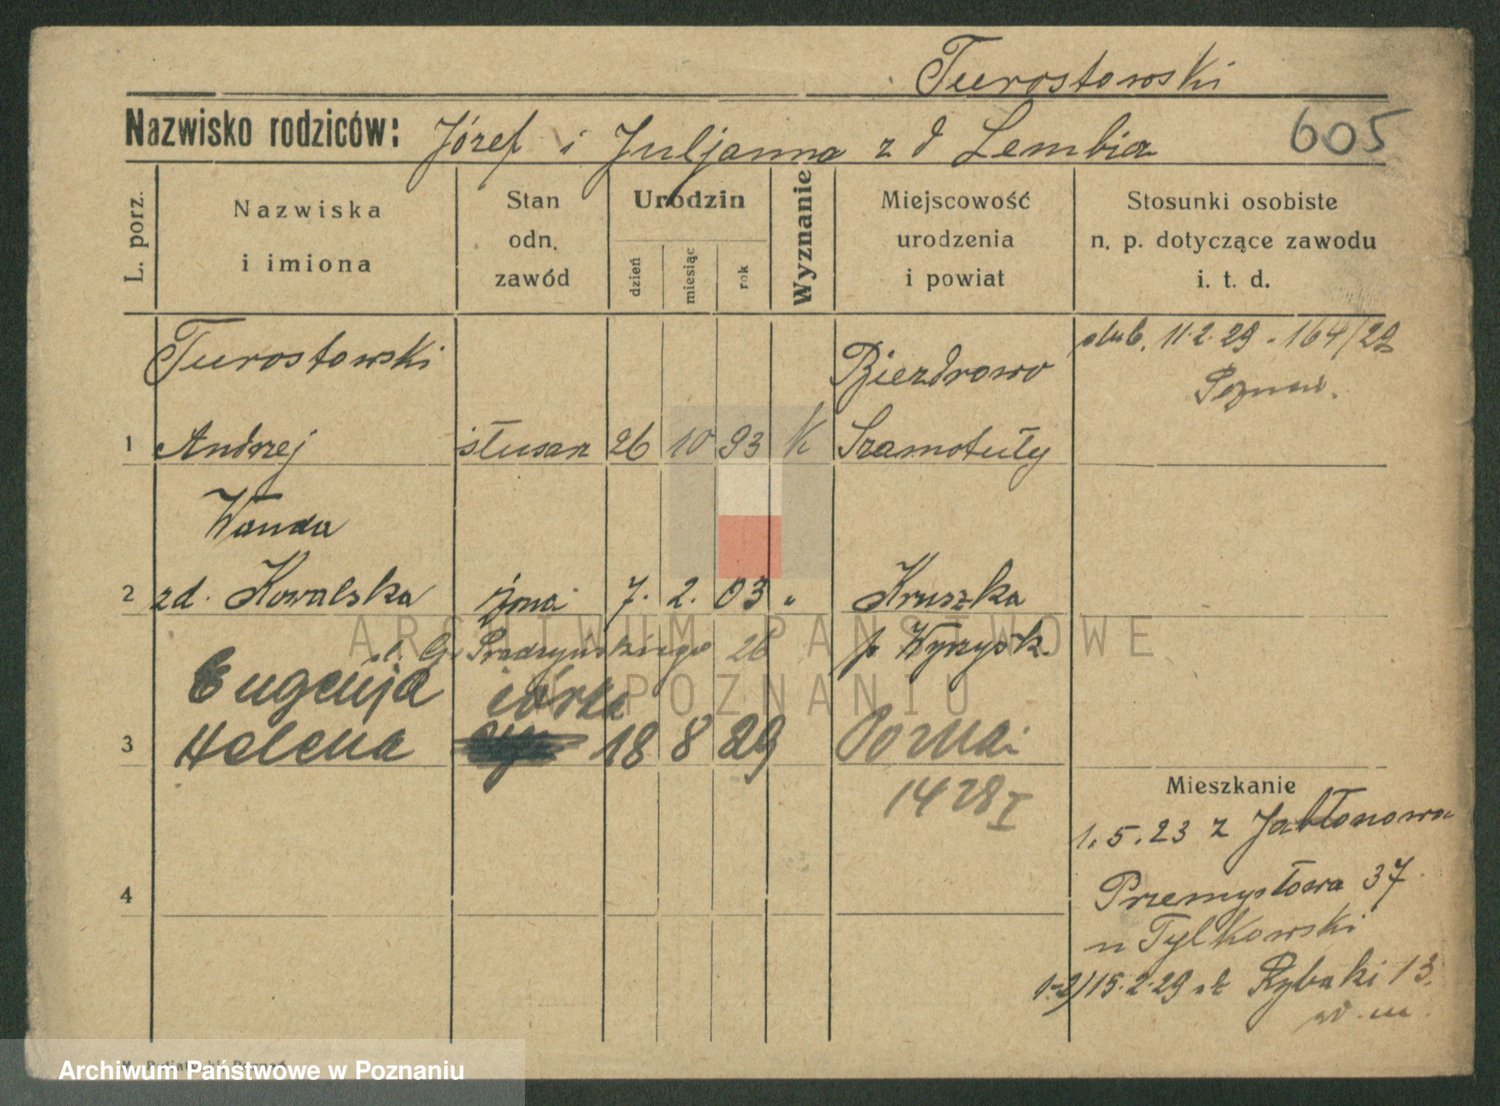 Turostowski
Nazwisko rodziców: Józef i Juljanna z d Lembicz 605
L. porz.
Nazwiska i imiona
Stan odn. zawód
Urodzin
dzień
miesiąc
rok
Wyznanie
Miejscowość urodzenia i powiat
Stosunki osobiste n. p. dotyczące zawodu i. t. d.
Turostowski Biezdrowo ślub. 11.2.29. 164/29
Poznań.
1 Andrzej ślusarz 26 10 93 K Szamotuły
Wanda
2 zd. Kowalska żona 7. 2. 03 " Kruszka
Pradzyńskiego 26 p. Wyrzysk.
Eugenja córka
3 Helena 18 8 29 Poznań
1428 I
Mieszkanie
1.5.23 z Jabłonowa
4 Przemysłowa 37
u Tylkowski
1-2/15.2.29 Rybaki 13.
w. m.
ARCHIWUM PAŃSTWOWE
W POZNANIU
Archiwum Państwowe w Poznaniu